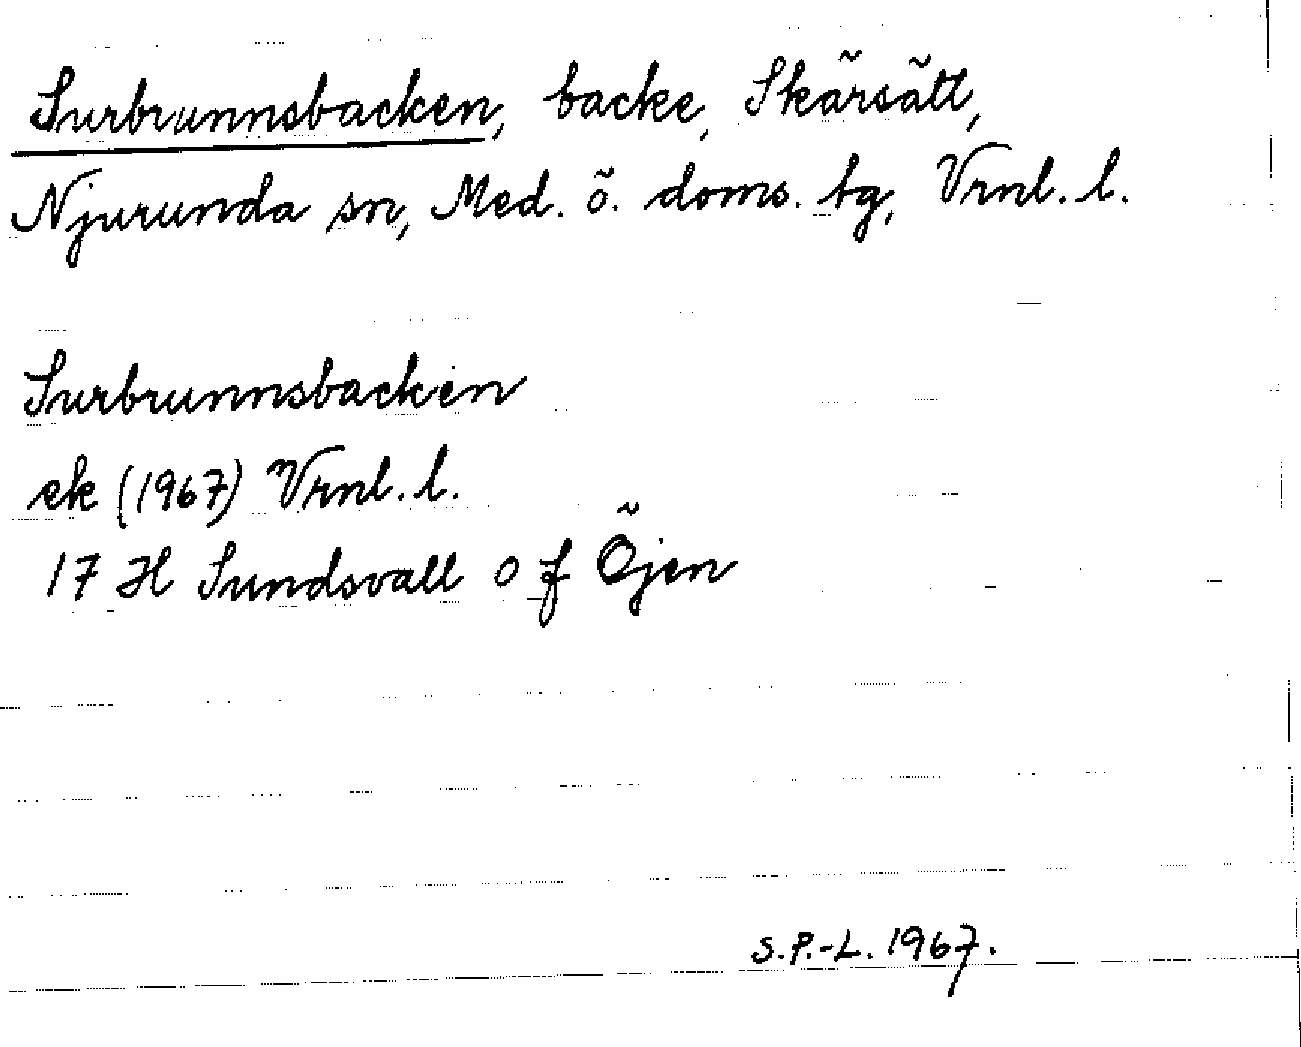 Surbrunnsbacken, backe, Skärsätt,
Njurunda sn, Med. ö. doms. tg, Vrnl. l.
Surbrunnsbacken
ek (1967) Vrnl. l.
17 H Sundsvall o f Öjen
S.P.-L. 1967.